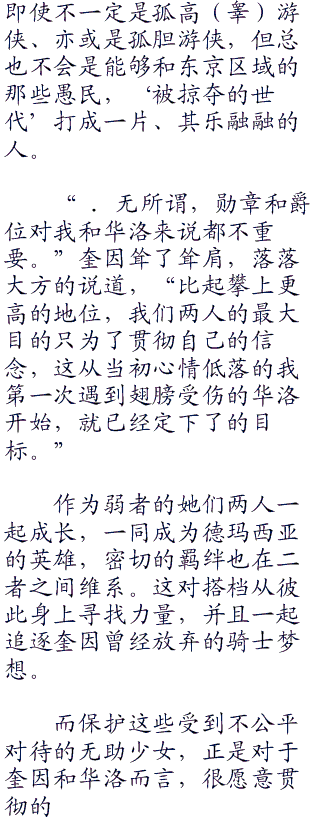 即使不一定是孤高（睾）游
侠、亦或是孤胆游侠，但总
也不会是能够和东京区域的
那些愚民，‘被掠夺的世
代’打成一片、其乐融融的
人。
“．无所谓，勋章和爵
位对我和华洛来说都不重
要。”奎因耸了耸肩，落落
大方的说道，“比起攀上更
高的地位，我们两人的最大
目的只为了贯彻自己的信
念，这从当初心情低落的我
第一次遇到翅膀受伤的华洛
开始，就已经定下了的目
标。”
作为弱者的她们两人一
起成长，一同成为德玛西亚
的英雄，密切的羁绊也在二
者之间维系。这对搭档从彼
此身上寻找力量，并且一起
追逐奎因曾经放弃的骑士梦
想。
而保护这些受到不公平
对待的无助少女，正是对于
奎因和华洛而言，很愿意贯
彻的